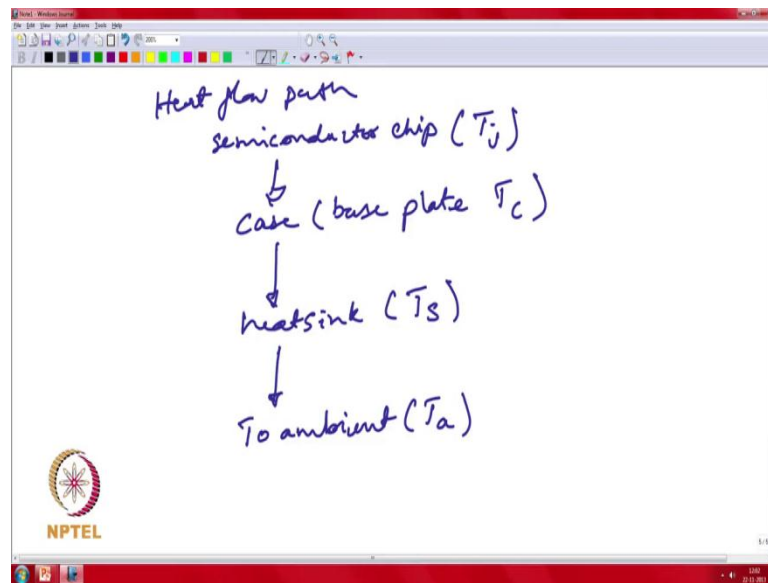 Note1 - Windows Journal
File Edit View Insert Actions Tools Help
200%
B I
Heat flow path
semiconductor chip (Tj)
Case (base plate Tc)
heatsink (Ts)
To ambient (Ta)
NPTEL
5/5
12:02
22-11-2017